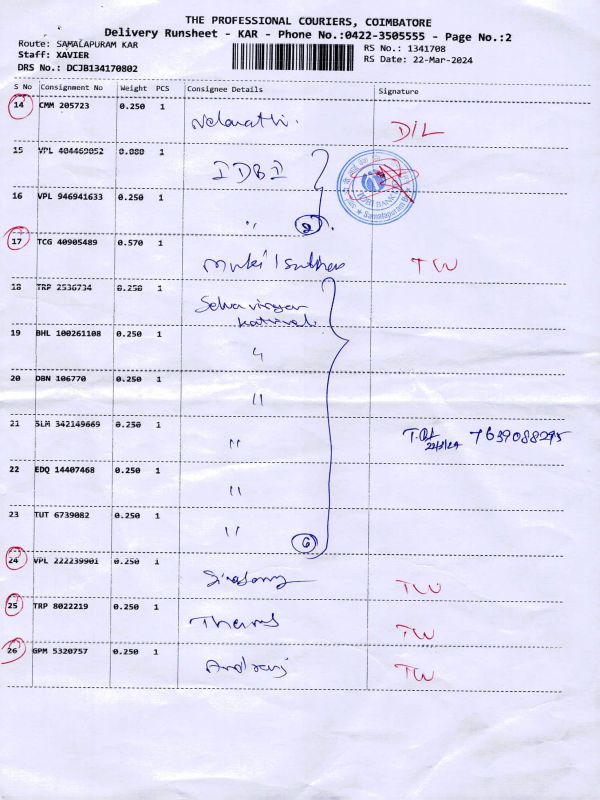 THE PROFESSIONAL COURIERS, COIMBATORE
Delivery Runsheet - KAR - Phone No.:0422-3505555 - Page No.:2
Route: SAMALAPURAM KAR
RS No.: 1341708
Staff: XAVIER
RS Date: 22-Mar-2024
DRS No.: DCJB134170802
S No Consignment No Weight PCS Consignee Details Signature
14 CMM 205723 0.250 1
D/L
15 VPL 404469052 0.080 1 IDBI
IDBI BANK
Samalapuram
16 VPL 946941633 0.250 1 " 2
17 TCG 40905489 0.570 1 TW
18 TRP 2536734 0.250 1
19 BHL 100261108 0.250 1 "
20 DBN 106770 0.250 1 "
21 SLM 342149669 0.250 1 " 7639088295
22/3/24
22 EDQ 14407468 0.250 1 "
23 TUT 6739082 0.250 1 " 6
24 VPL 222239901 0.250 1 TW
25 TRP 8022219 0.250 1 TW
26 GPM 5320757 0.250 1 TW